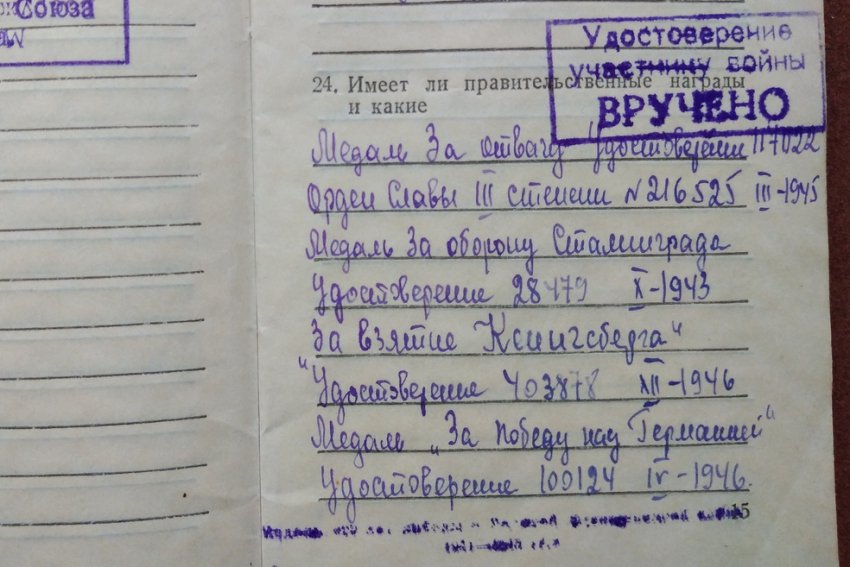 Союза
Удостоверение
участнику войны
ВРУЧЕНО
24. Имеет ли правительственные награды
и какие
Медаль За отвагу Удостоверении 117022
Орден Славы III степени №216525 III-1945
Медаль За оборону Сталинграда
Удостоверение 28479 X-1943
За взятие Ксингсберга"
"Удостоверение 403878 XII-1946
Медаль „За победу над Германией"
Удостоверение 100124 IV-1946.
15